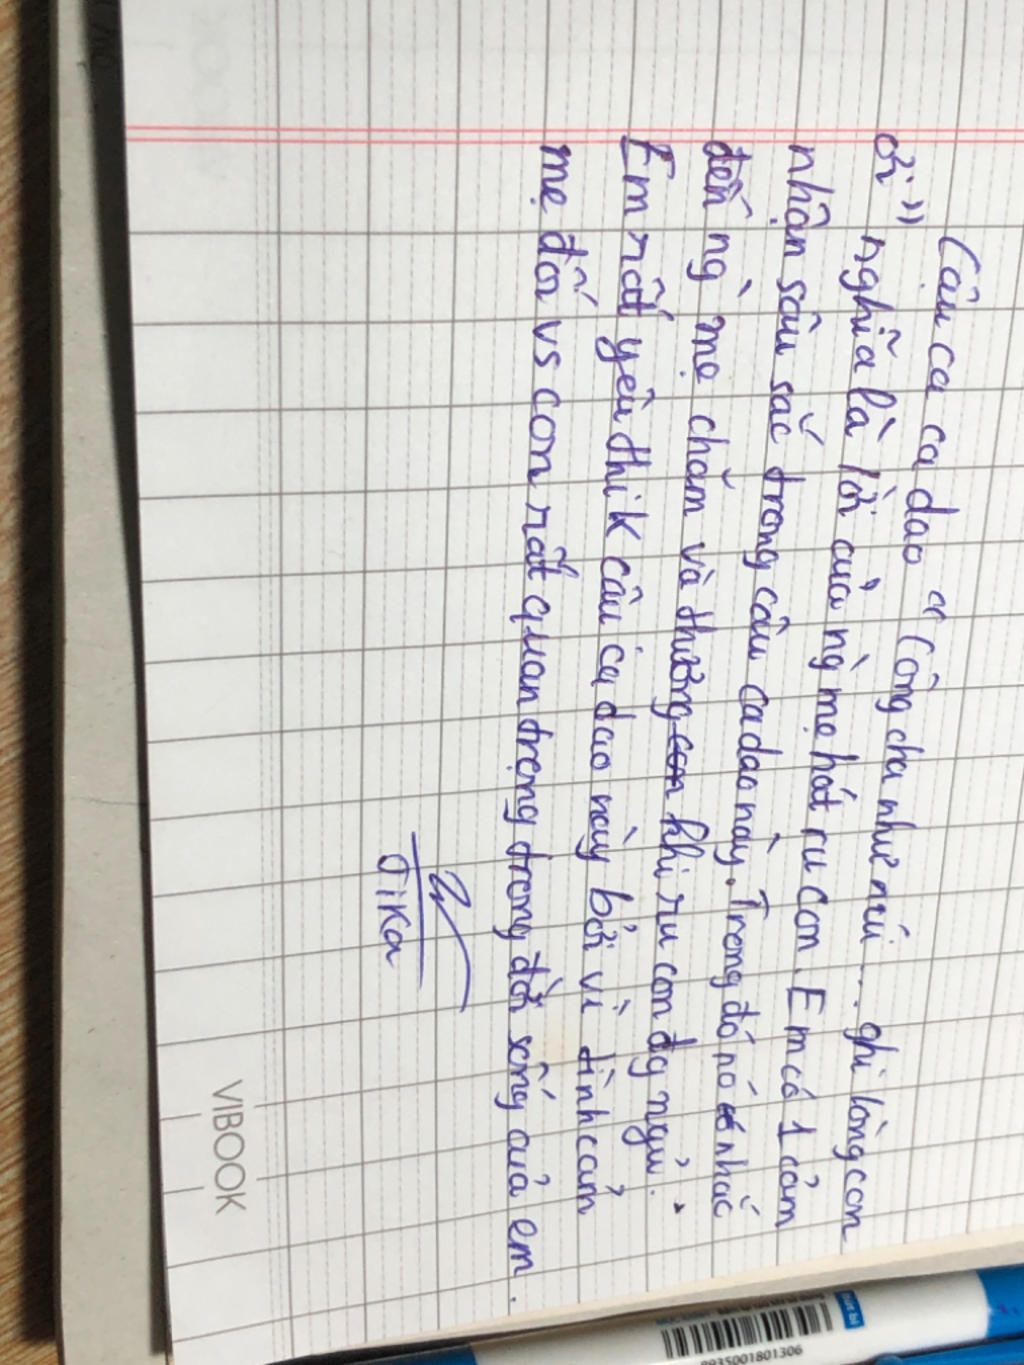 Câu ca ca dao " Công cha như núi ... ghi lòng con
ơi" nghĩa là lời của ng mẹ hát ru con. Em có 1 cảm
nhận sâu sắc trong câu ca dao này. Trong đó nó có nhắc
đến ng` mẹ chăm và thương con khi ru con đg ngủ.
Em rất yêu thik câu ca dao này bởi vì tình cảm
mẹ đối vs con rất quan trọng trong đời sống của em.
Jika
VIBOOK
8935001801306